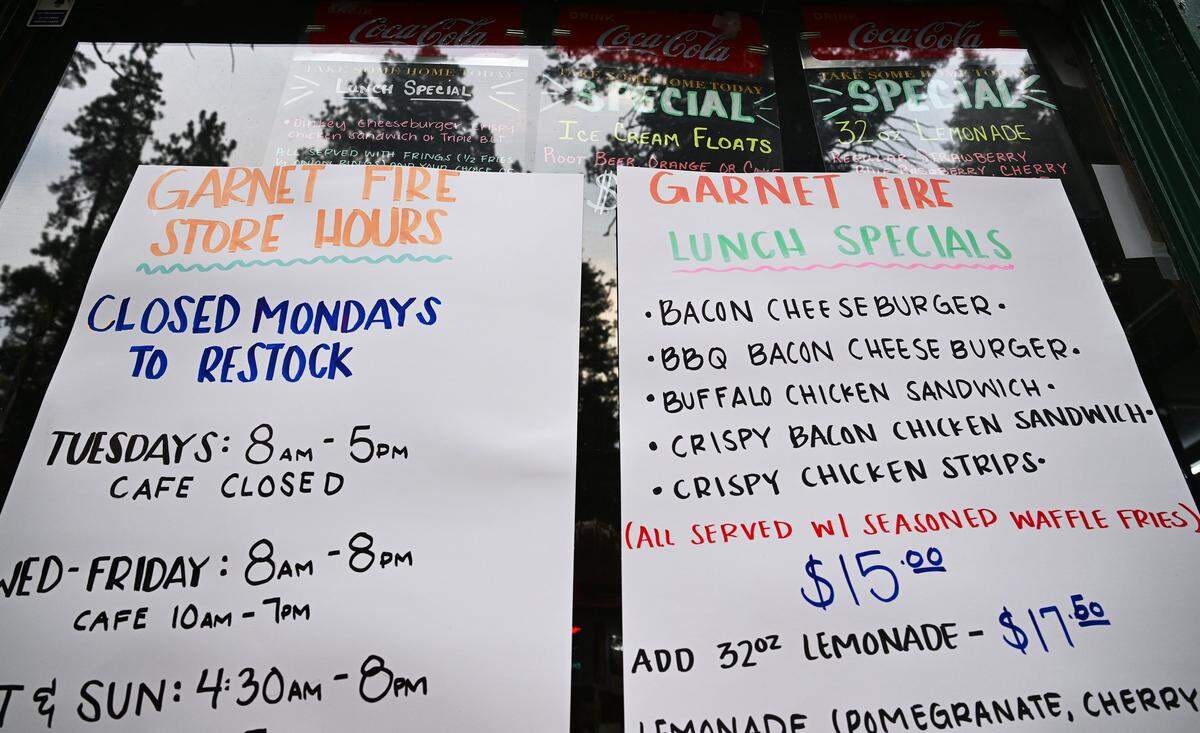 DRINK
Coca-Cola
TAKE SOME HOME TODAY
LUNCH SPECIAL
• Dinkey Cheeseburger, Crispy
Chicken Sandwich or Triple BLT
ALL SERVED WITH FRINGS (1/2 FRIES
DRINK
Coca-Cola
TAKE SOME HOME TODAY
SPECIAL
ICE CREAM FLOATS
ROOT BEER, ORANGE OR COKE
$
DRINK
Coca-Cola
TAKE SOME HOME TODAY
SPECIAL
32 oz LEMONADE
REGULAR STRAWBERRY
CHERRY
GARNET FIRE
STORE HOURS
CLOSED MONDAYS
TO RESTOCK
TUESDAYS: 8AM - 5PM
CAFE CLOSED
WED-FRIDAY: 8AM - 8PM
CAFE 10AM - 7PM
T & SUN: 4:30AM - 8PM
GARNET FIRE
LUNCH SPECIALS
• BACON CHEESEBURGER •
• BBQ BACON CHEESEBURGER •
• BUFFALO CHICKEN SANDWICH •
• CRISPY BACON CHICKEN SANDWICH •
• CRISPY CHICKEN STRIPS •
(ALL SERVED W/ SEASONED WAFFLE FRIES)
$15.00
ADD 32oz LEMONADE - $17.50
LEMONADE (POMEGRANATE, CHERRY